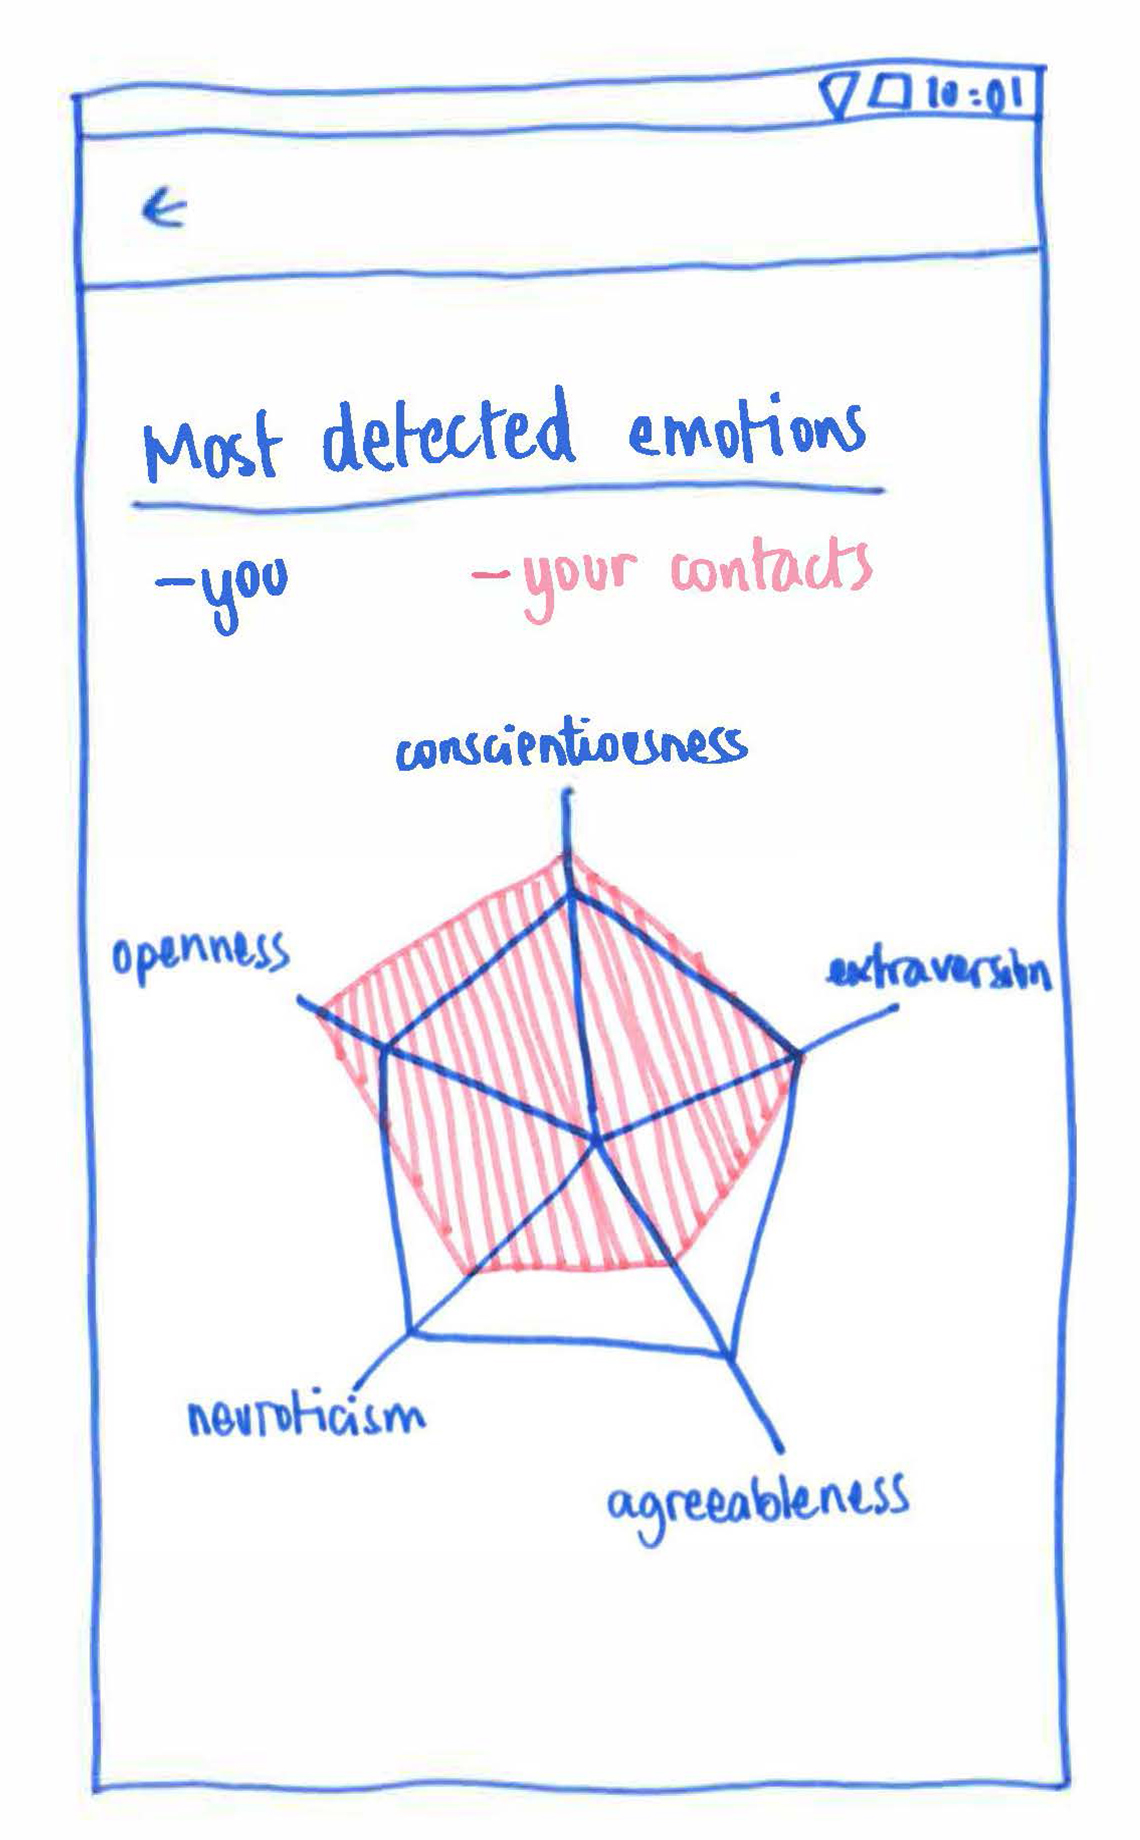 10:01
Most detected emotions
-you -your contacts
conscientiousness
openness
extraversion
neuroticism
agreeableness